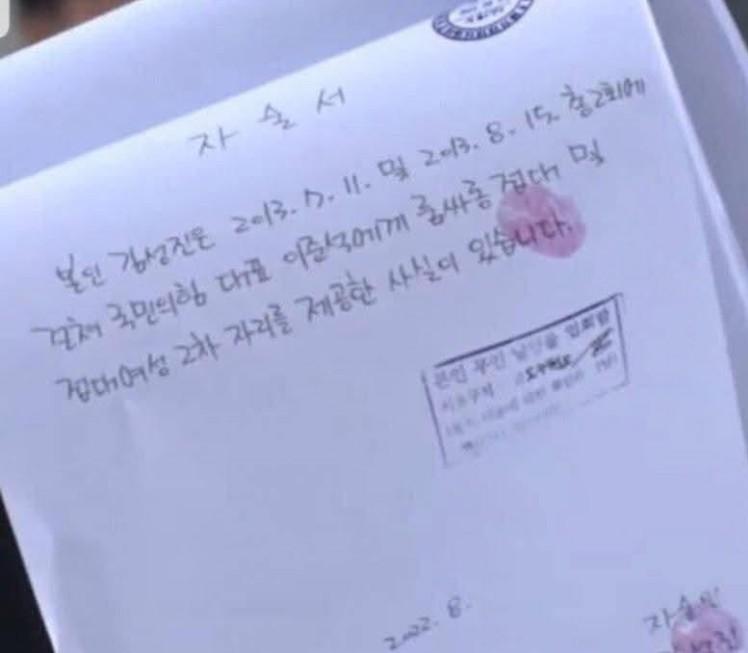 자술서
본인 김성진은 2013. 7. 11. 및 2013. 8. 15. 총 2회에
걸쳐 국민의힘 대표 이준석에게 룸싸롱 접대 및
접대여성 2차 자리를 제공한 사실이 있습니다.
본인 무인 날인을
2022. 8.
자술인